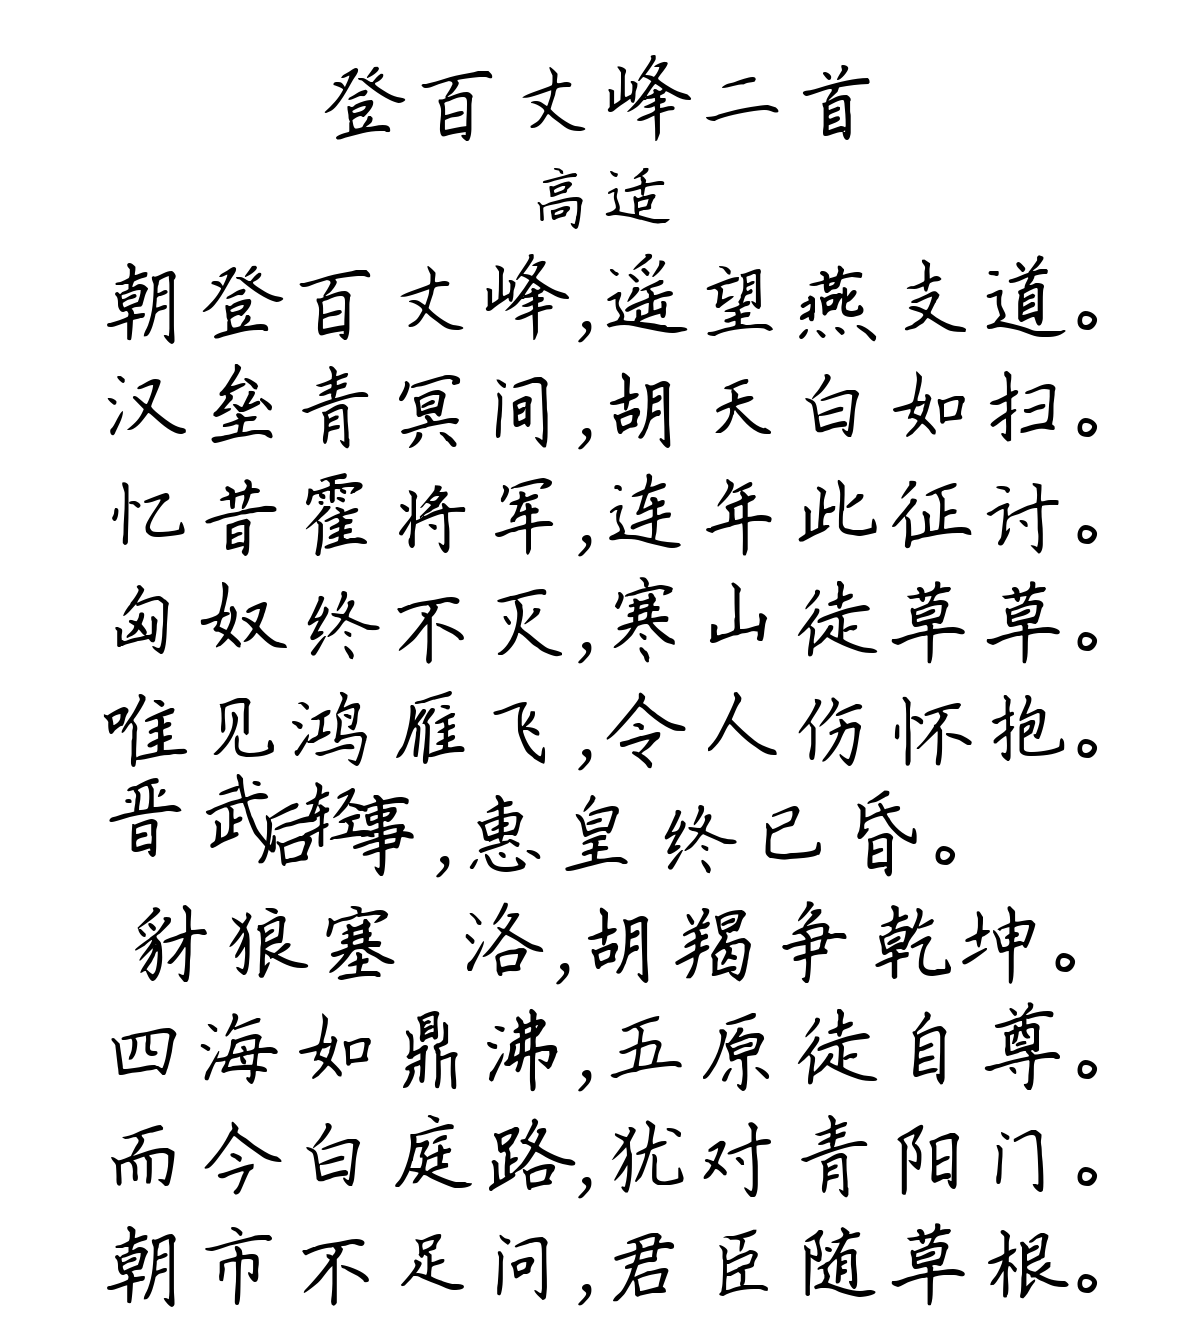 登百丈峰二首
高适
朝登百丈峰,遥望燕支道。
汉垒青冥间,胡天白如扫。
忆昔霍将军,连年此征讨。
匈奴终不灭,寒山徒草草。
唯见鸿雁飞,令人伤怀抱。
晋武轻后事,惠皇终已昏。
豺狼塞 洛,胡羯争乾坤。
四海如鼎沸,五原徒自尊。
而今白庭路,犹对青阳门。
朝市不足问,君臣随草根。